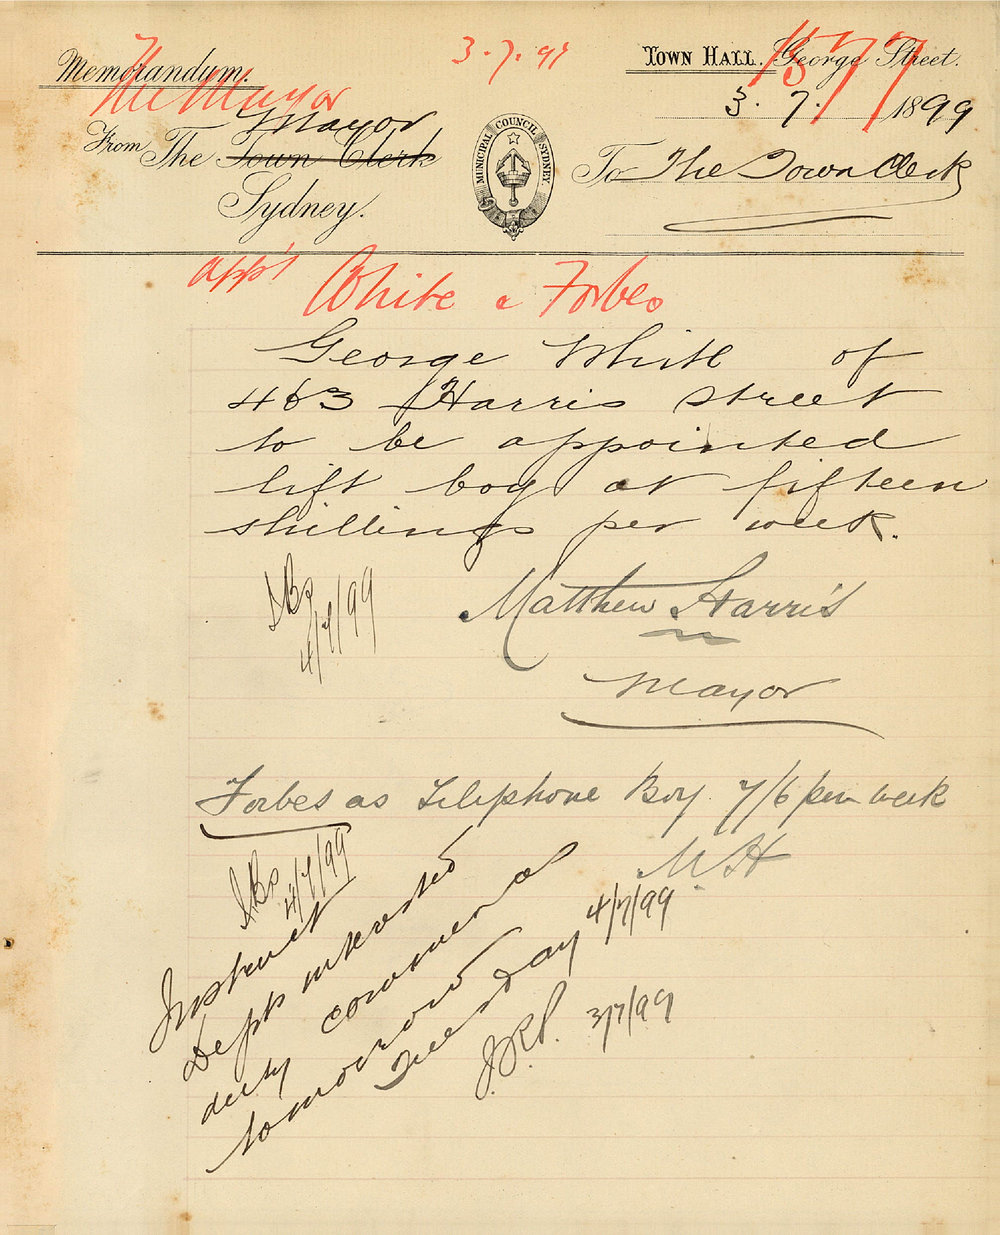 Memorandum.
The Mayor
3.7.99
TOWN HALL. George Street.
1577
3. 7. 1899
From The Town Clerk
Mayor
Sydney.
MUNICIPAL COUNCIL SYDNEY.
To The Town Clerk
app't White & Forbes
George White of
463 Harris Street
to be appointed
lift boy at fifteen
shillings per week.
4/7/99
Matthew Harris
Mayor
Forbes as Telephone Boy 7/6 per week
4/7/99
M.H
Instruct
Depts interested
duty commence
tomorrow
Tuesday 4/7/99
3/7/99